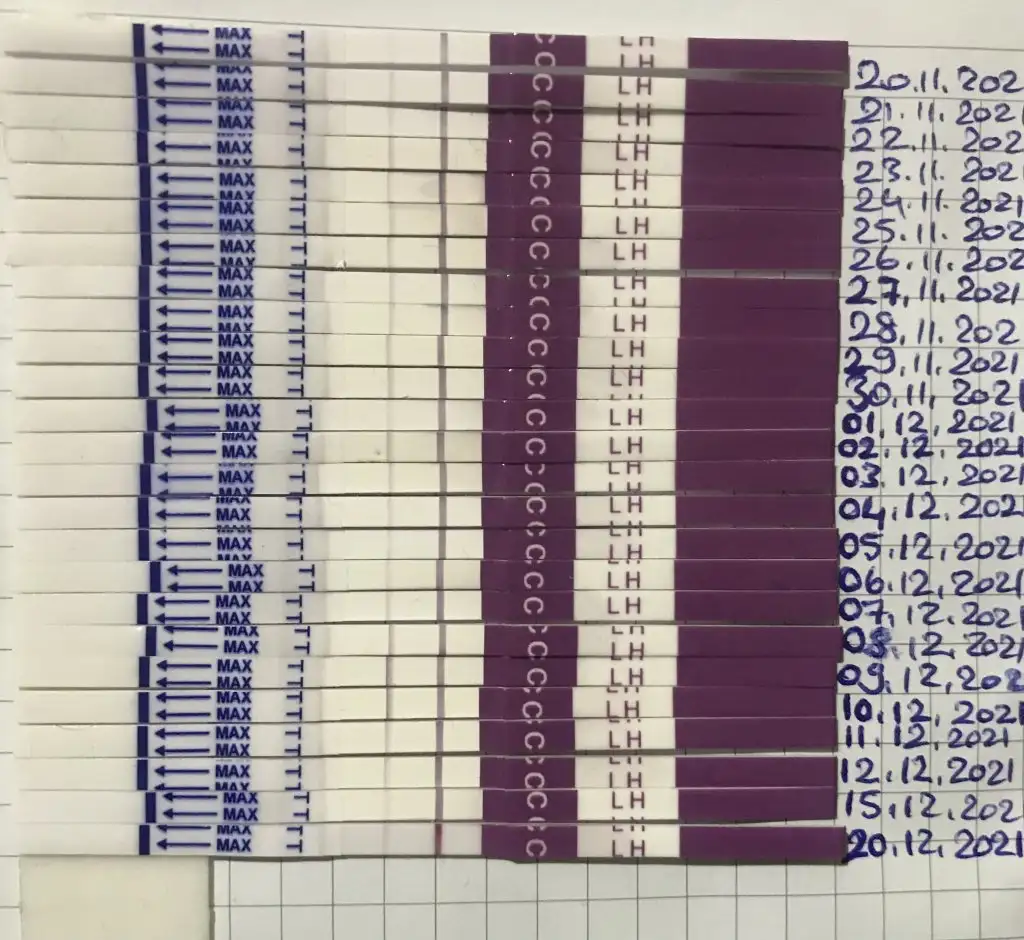 MAX T C LH
MAX T C LH 20.11.202
MAX T C LH 21.11.2021
MAX T C LH 22.11.202
MAX T C LH 23.11.202
MAX T C LH 24.11.2021
MAX T C LH 25.11.202
MAX T C LH 26.11.202
MAX T C LH 27.11.2021
MAX T C LH 28.11.202
MAX T C LH 29.11.2021
MAX T C LH 30.11.2021
MAX T C LH 01.12.2021
MAX T C LH 02.12.2021
MAX T C LH 03.12.2021
MAX T C LH 04.12.202
MAX T C LH 05.12.2021
MAX T C LH 06.12.2021
MAX T C LH 07.12.2021
MAX T C LH 08.12.2021
MAX T C LH 09.12.202
MAX T C LH 10.12.2021
MAX T C LH 11.12.2021
MAX T C LH 12.12.2021
MAX T C LH 15.12.202
MAX T C LH 20.12.2021